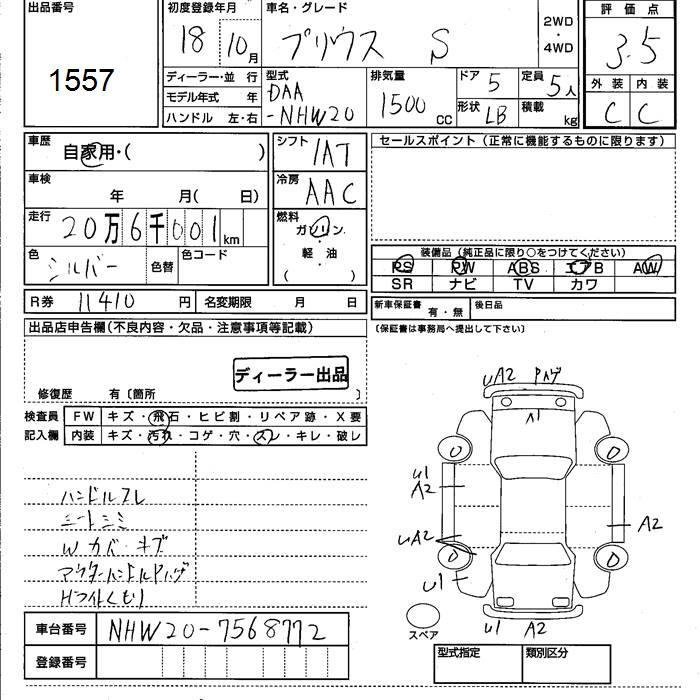 出品番号 初度登録年月 車名・グレード 評価点
1557 18 10月 プリウス S 2WD・4WD 3.5
ディーラー・並行 型式 排気量 ドア 5 定員 5人 外装 内装
モデル年式 年 DAA 1500cc 形状 LB 積載 kg C C
ハンドル 左・右 -NHW20
車歴 自家用・( ) シフト IAT セールスポイント (正常に機能するものに限ります)
車検 年 月( 日) 冷房 AAC
走行 20万6千001km 燃料 ガソリン・軽油 ( )
色 シルバー 色替 色コード
装備品 (純正品に限り○をつけてください)
PS PW ABS エアB AW
SR ナビ TV カワ
R券 11410円 名変期限 月 日 新車保証書 有・無 後日品
(保証書は事務局へ提出して下さい)
出品店申告欄(不良内容・欠品・注意事項等記載)
ディーラー出品
修復歴 有〔箇所 〕
検査員 FW キズ・飛石・ヒビ割・リペア跡・X要
記入欄 内装 キズ・汚れ・コゲ・穴・スレ・キレ・破レ
ハンドルスレ
シートシミ
Wカバーキズ
アウターハンドルPハゲ
Hライトくもり
UA2 Pハゲ
A1
U1
A2
A2
UA2
U1
U1 A2
スペア
車台番号 NHW20-7568772
登録番号
型式指定 類別区分